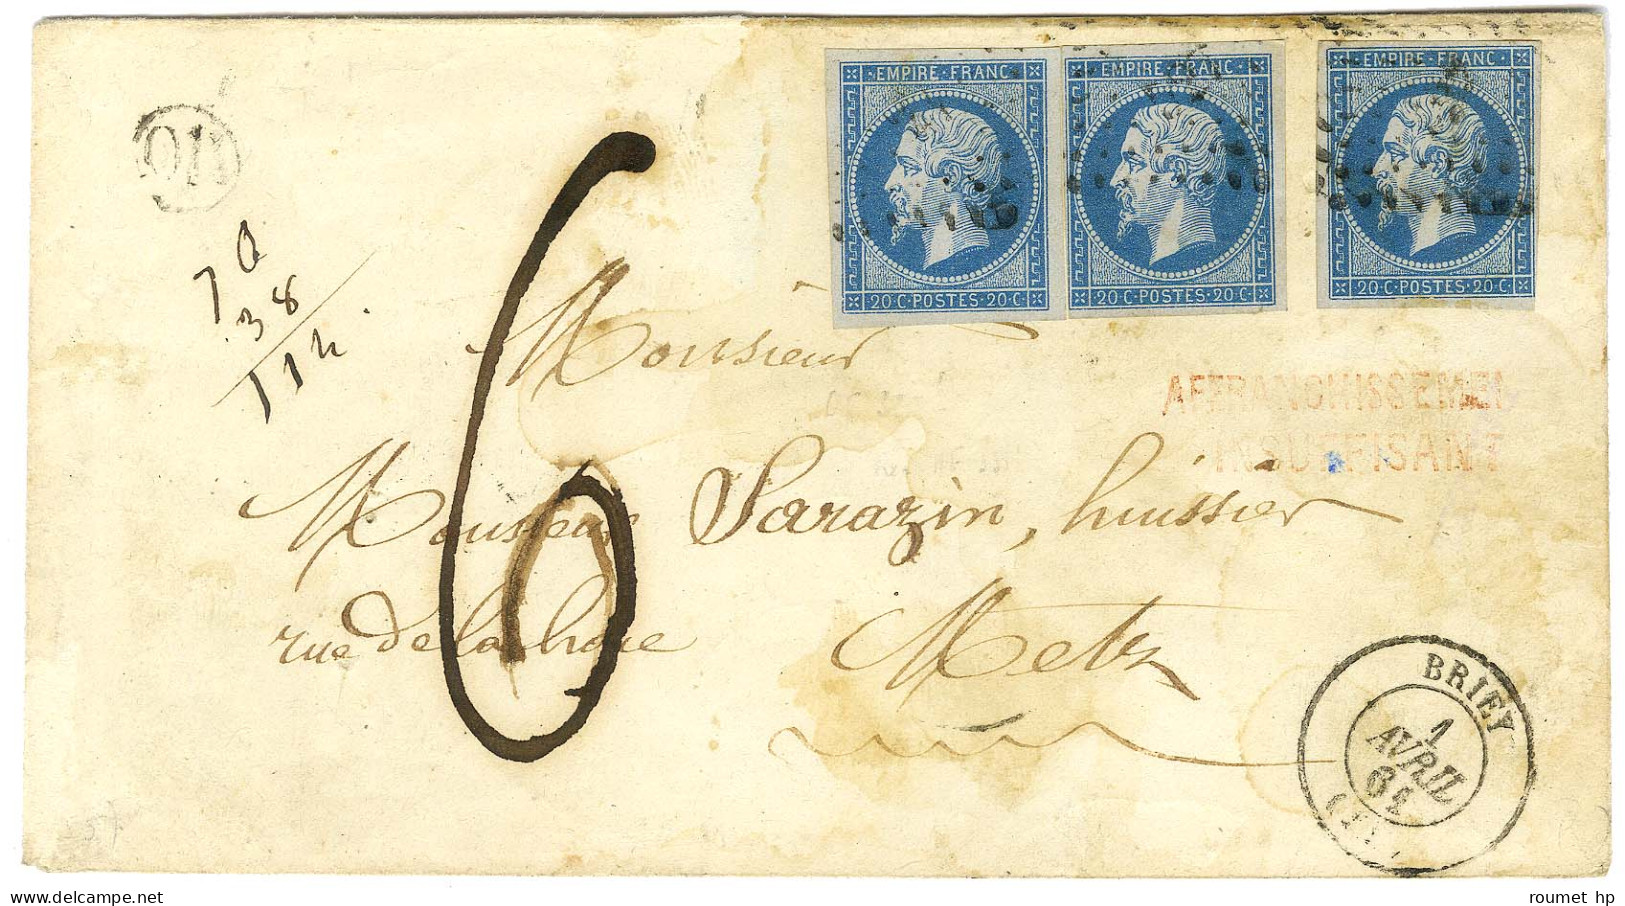 EMPIRE FRANC
20 C POSTES 20 C
EMPIRE FRANC
20 C POSTES 20 C
EMPIRE FRANC
20 C POSTES 20 C
38
6
Monsieur
AFFRANCHISSEMEN
INSUFFISANT
Monsieur Sarazin, huissier
rue de la
Metz
BRIEY
1
AVRIL
61
roumet hp